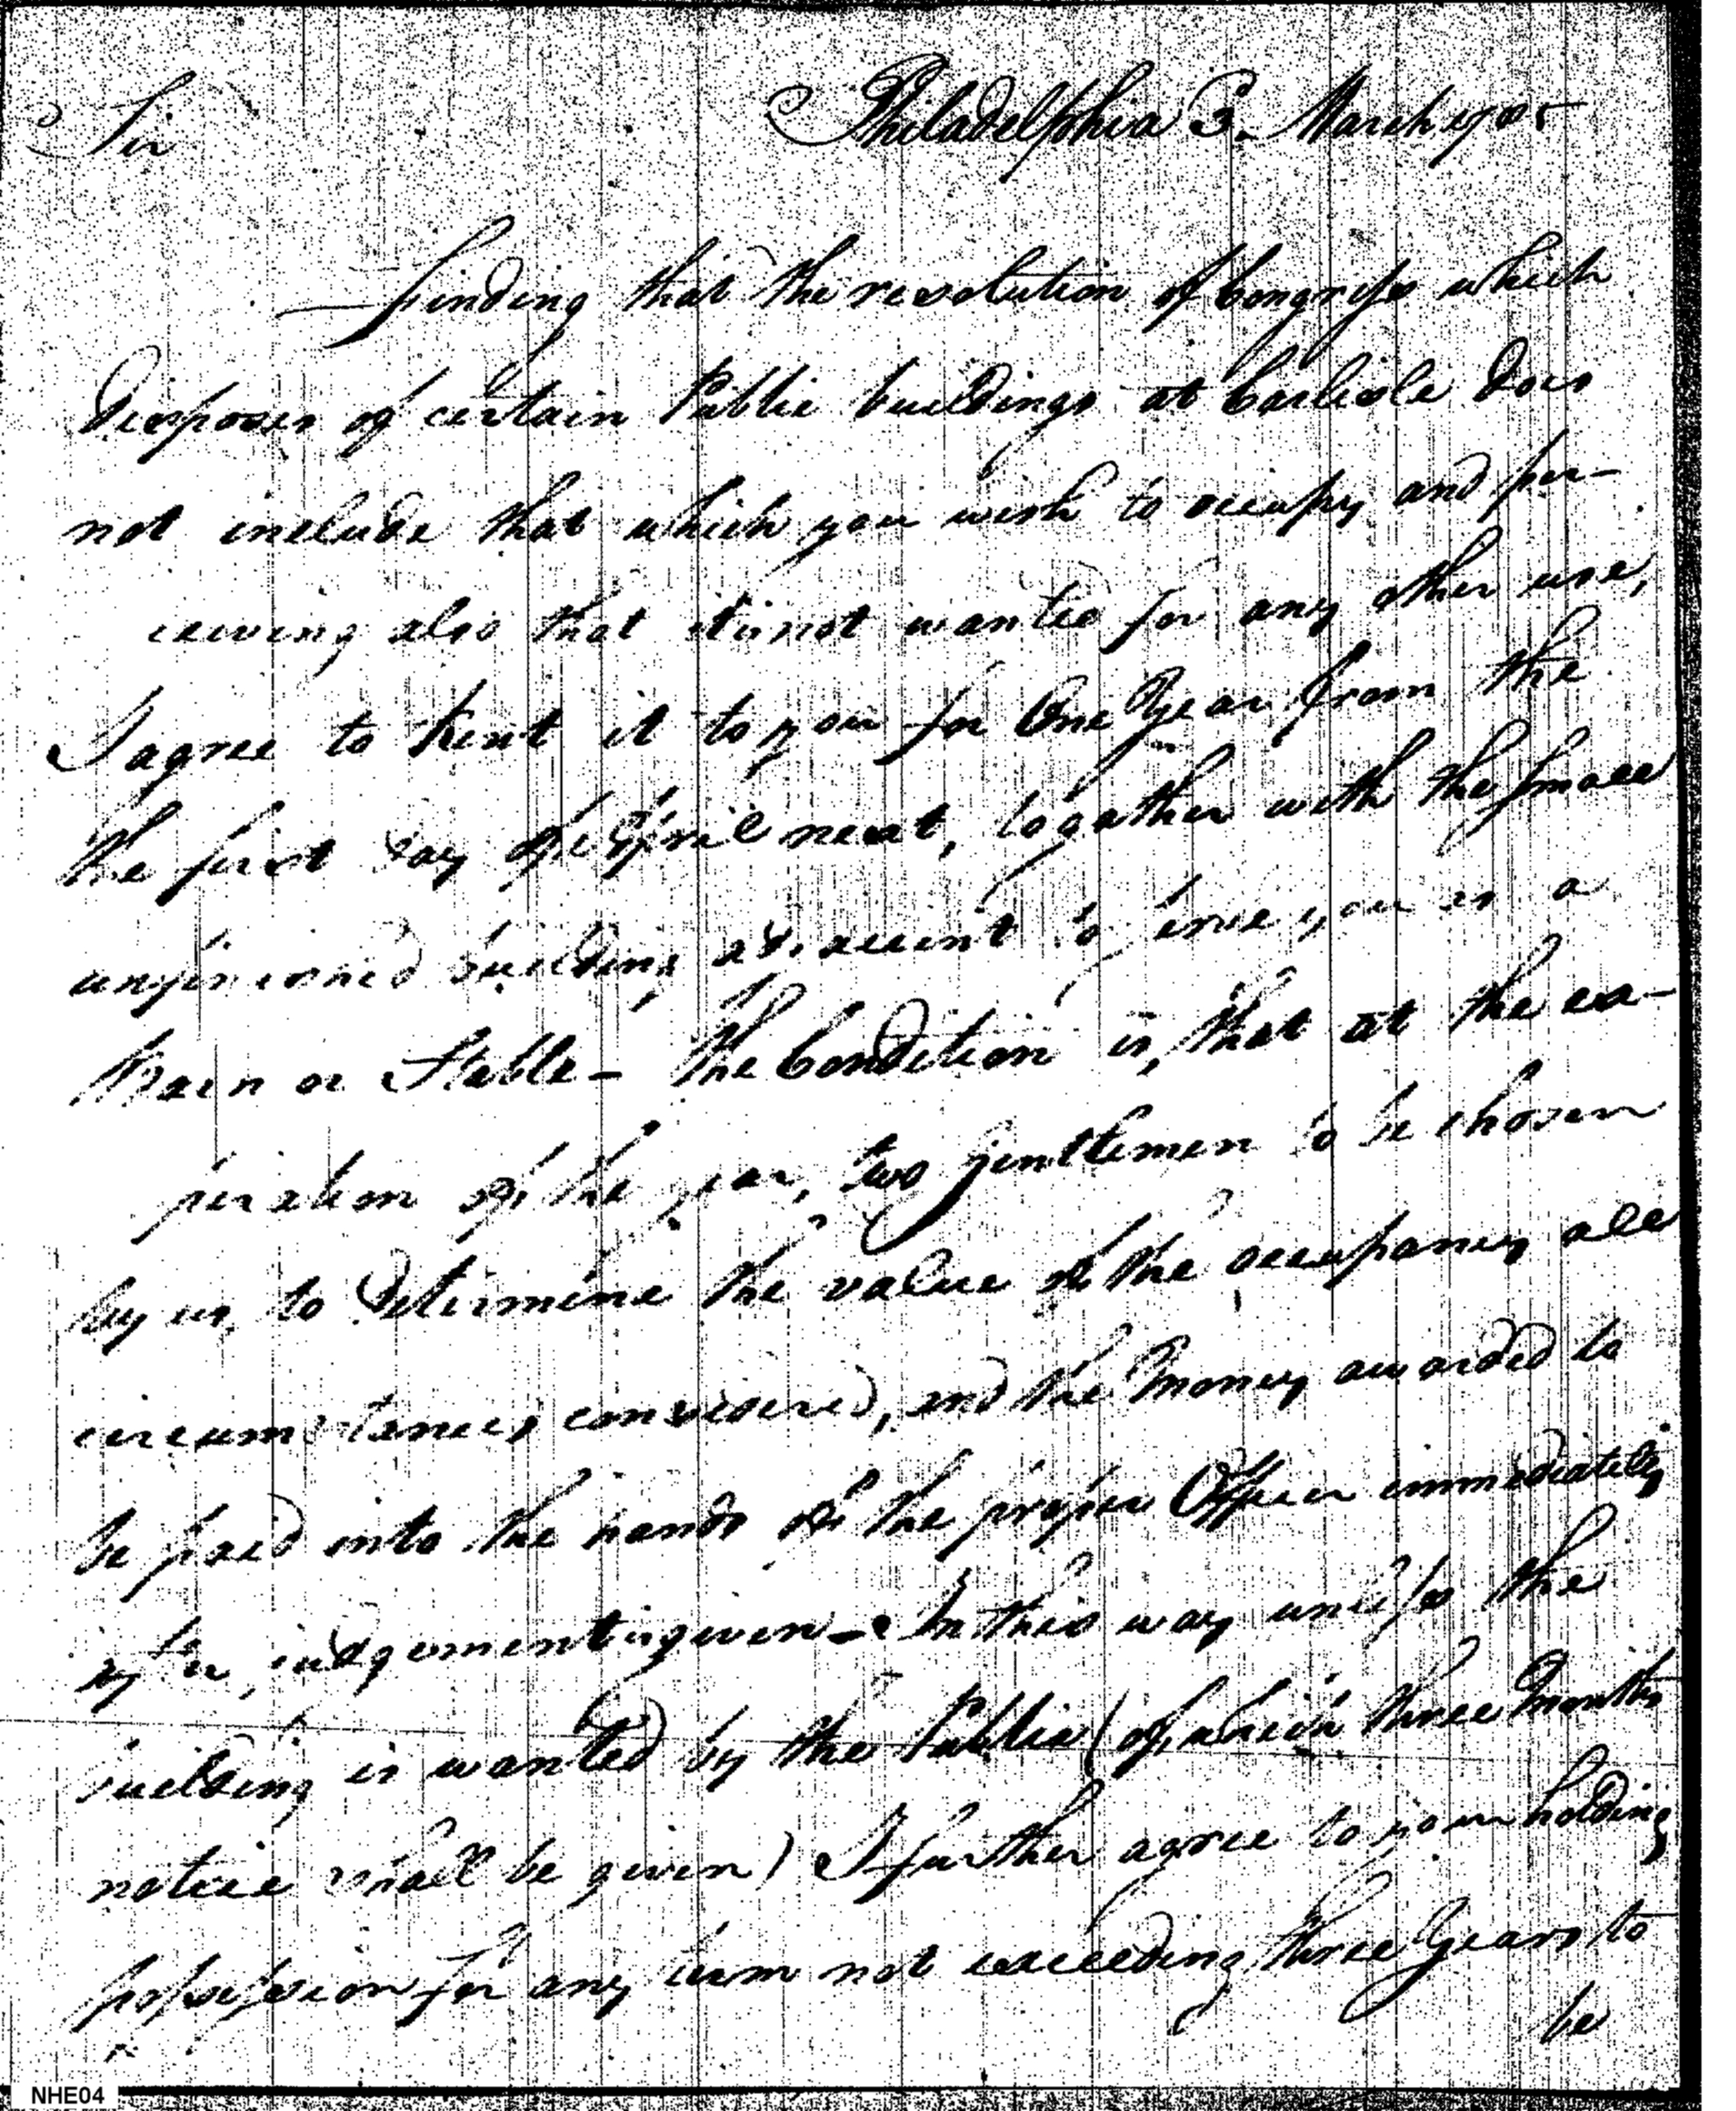 Sir
Philadelphia 3. March 1785
Finding that the resolution of Congress which
disposes of certain Public buildings at Carlisle does
not include that which you wish to occupy and per-
ceiving also that it is not wanted for any other use,
I agree to Rent it to you for One Year from the
the first day of April next, together with the small
unfinished building adjacent to serve you as a
Barn or Stable - The Condition is, that at the ex-
piration of the year, two gentlemen to be chosen
by us, to determine the value of the occupancy all
circumstances considered, and the Money awarded to
be paid into the hands of the proper Officer immediately
after judgement is given - In this way unless the
building is wanted by the Public (of which three Months
notice shall be given) I further agree to your holding
possession for any term not exceeding three Years to
be
NHE04